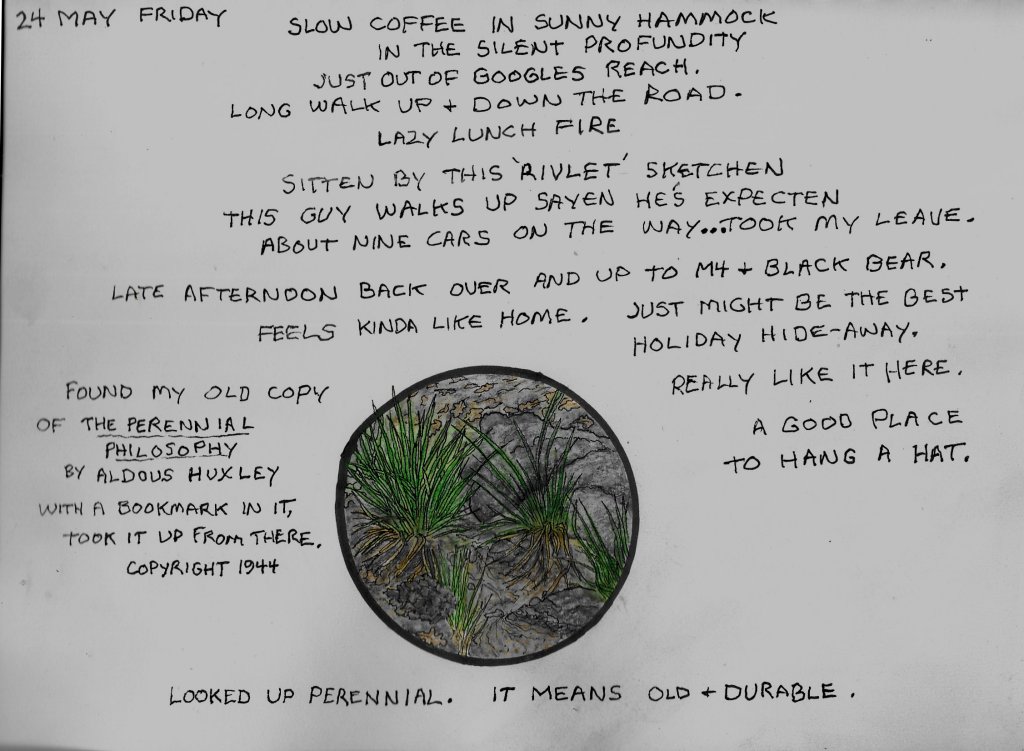 24 MAY FRIDAY
SLOW COFFEE IN SUNNY HAMMOCK
IN THE SILENT PROFUNDITY
JUST OUT OF GOOGLES REACH.
LONG WALK UP + DOWN THE ROAD.
LAZY LUNCH FIRE
SITTEN BY THIS 'RIVLET' SKETCHEN
THIS GUY WALKS UP SAYEN HE'S EXPECTEN
ABOUT NINE CARS ON THE WAY...TOOK MY LEAVE.
LATE AFTERNOON BACK OVER AND UP TO M4 + BLACK BEAR.
FEELS KINDA LIKE HOME. JUST MIGHT BE THE BEST
HOLIDAY HIDE-AWAY.
REALLY LIKE IT HERE.
A GOOD PLACE
TO HANG A HAT.
FOUND MY OLD COPY
OF THE PERENNIAL
PHILOSOPHY
BY ALDOUS HUXLEY
WITH A BOOKMARK IN IT,
TOOK IT UP FROM THERE.
COPYRIGHT 1944
LOOKED UP PERENNIAL. IT MEANS OLD + DURABLE.